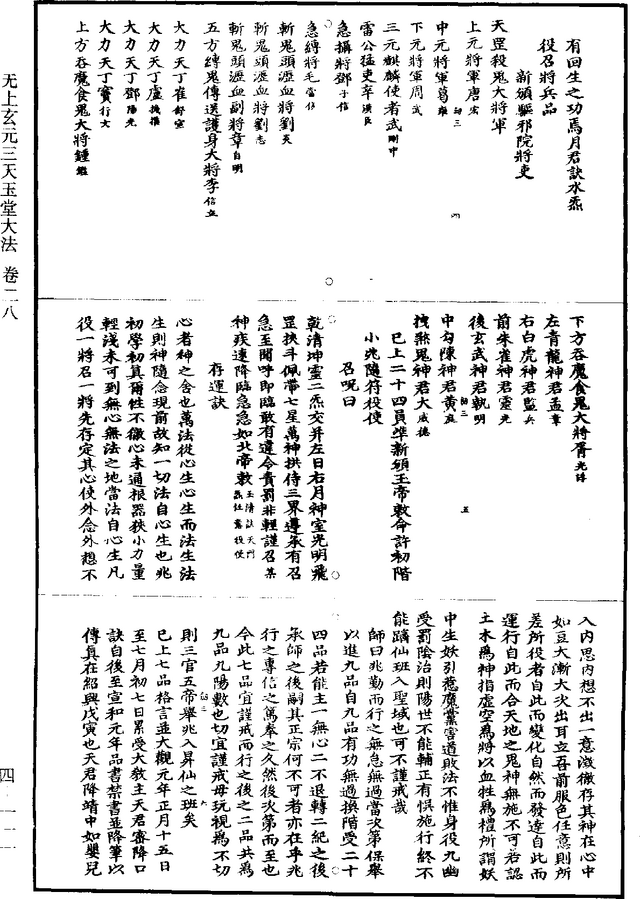 无上玄元三天玉堂大法 卷二八
有回生之功焉月君訣水炁
役召將兵品
新頒驅邪院將吏
天罡殺鬼大將軍
上元將軍唐宏
中元將軍葛雍
下元將軍周武
三元麒麟使者武剛中
雷公猛吏辛漢臣
急攝將鄧子信
急縛將毛
斬鬼頭瀝血將劉天
斬鬼頭瀝血將劉志
斬鬼頭瀝血副將章自明
五方縛鬼傳送護身大將李信立
大力天丁崔舒宣
大力天丁盧機權
大力天丁鄧陽光
大力天丁竇行文
上方吞魔食鬼大將鍾
下方吞魔食鬼大將胥光祥
左青龍神君孟章
右白虎神君監兵
前朱雀神君靈光
後玄武神君執明
中勾陳神君黃直
拽煞鬼神君大威德
已上二十四員準新頒玉帝敕命許初階
小兆隨符役使
召呪曰
乾清坤靈二炁交并左日右月神室光明飛
罡挾斗佩帶七星萬神拱侍三界遵承有召
急至聞呼即臨敢有違令責罰非輕謹召某
神疾速降臨急急如北帝敕
存運訣
心者神之舍也萬法從心生心生而法生法
生則神隨念現前故知一切法自心生也兆
初學初真爾性不徹心未通根器狹小力量
輕淺未可到無心無法之地當法自心生凡
役一將召一將先存定其心使外念外想不
入內思內想不出一意澂徹存其神在心中
如豆大漸大火出耳立吾前服色任意則所
差所役者自此而變化自然而發達自此而
運行自此而合天地之鬼神無施不可若認
土木爲神指虛空爲將以血牲爲禮所謂妖
中生妖引惹魔黨害道敗法不惟身役九幽
受罰陰治則陽世不能輔正有悞施行終不
能躋仙班入聖域也可不謹戒哉
師曰兆勤而行之無怠無過當次第保舉
以進九品自九品有功無過換階受二十
四品若能主一無心二不退轉二紀之後
承師之後嗣其正宗何不可者亦在乎兆
行之專信之篤奉之久然後次第而至也
今此七品宜謹戒而行之後之二品共爲
九品九陽數也切宜謹戒毋玩視爲不切
則三官五帝舉兆入昇仙之班矣
已上七品格言並大觀元年正月十五日
至七月初七日累受大敎主天君密降口
訣自後至宣和元年品書禁書並降筆以
傳真在紹興戊寅也天君降靖中如嬰兒